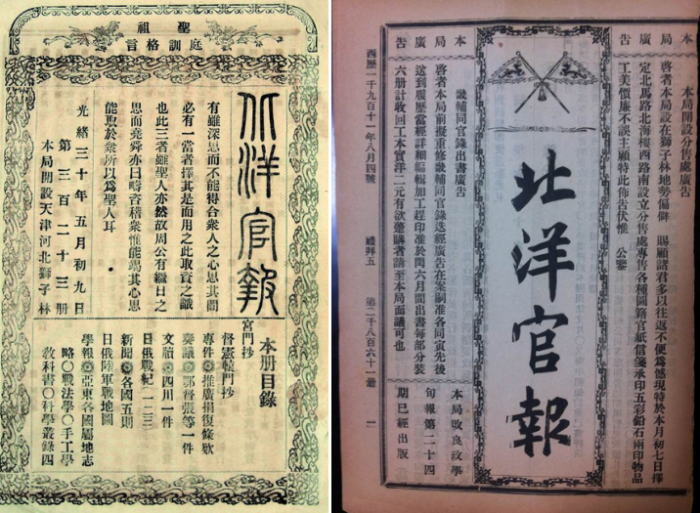 聖祖
庭訓格言
北洋官報
有雖深思而不能得合衆人之心思其間
必有一當者擇其是而用之此取資之識
也此三者雖聖人亦然故周公有繼日之
思而堯舜亦曰疇咨稽衆惟能竭其心思
能聖於衆所以爲聖人耳
光緒三十年五月初九日
第三百二十三册
本局開設天津河北獅子林
本册目錄
宮門抄
督憲轅門抄
專件○推廣捐復條欵
奏議○鄂督張等一件
文牘○四川一件
日俄戰紀一二三
新聞○各國五則
日俄陸軍戰地圖
學報○亞東各國屬地志
略○戰法學○手工學
教科書○科學叢錄四
本局廣告
本局開設分售處廣告
啓者本局設在獅子林地勢偏僻 賜顧諸君多以往返不便爲憾現特於本月初七日擇
定北馬路北海樓西路南設立分售處專售各種圖路官紙信箋承印五彩鉛石兩印物品
工美價廉不誤主顧特此佈告伏惟 公鑒
北洋官報
本局廣告
畿輔同官錄出書廣告
啓者本局前擬重修畿輔同官錄迭經廣告在案嗣准各同寅先後
送到履歷當經詳細編輯加工趕印准於閏六月間出書每部分裝
六册計收回工本實洋二元有欲躉購者請至本局面議可也
本局改良政學
旬報第二十四
期已經出版
西歷一千九百十一年八月四號
禮拜五
第二千八百六十一册
一